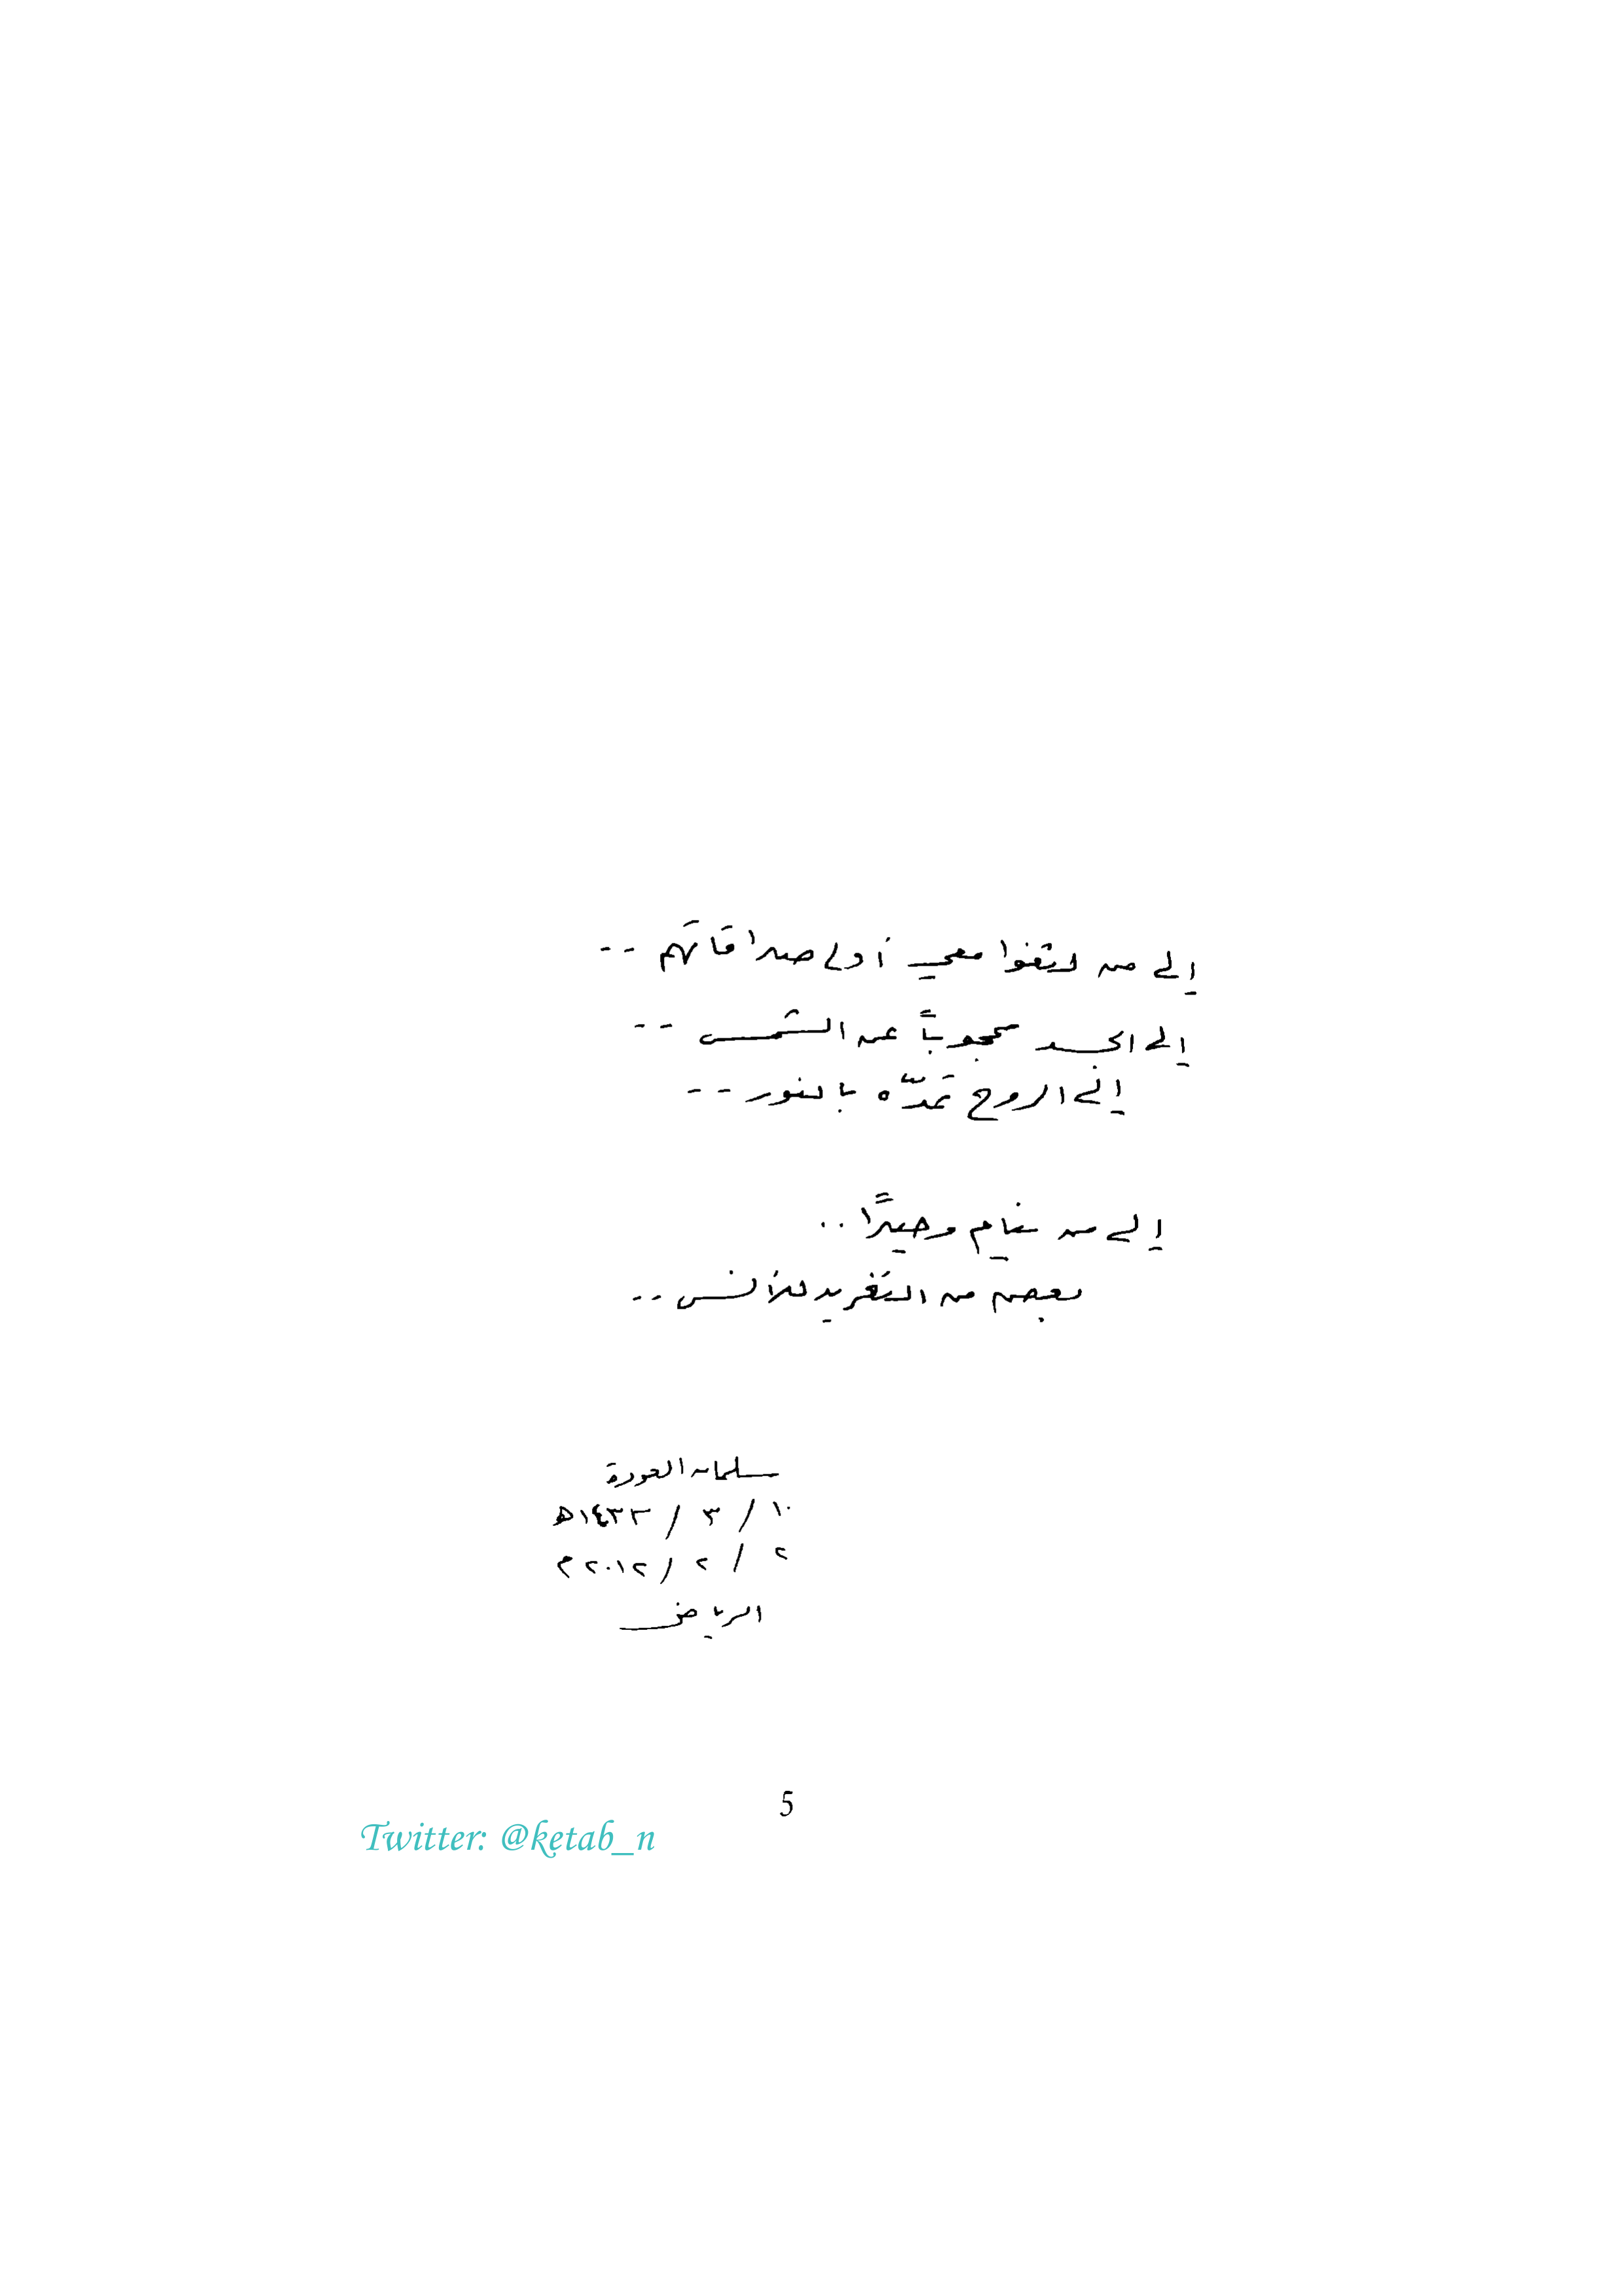 إلى من لثغوا معي أولى صداقاتهم --
إلى الجسد محجوباً عن الشمس --
إلى الروح تمدّه بالنور --
إلى من ينام وحيدًا ..
بعض من التغريد للأنس ..
سلمان العودة
١٠ / ٣ / ١٤٣٣هـ
٢ / ٢ / ٢٠١٢م
الرياض
5
Twitter: @ketab_n